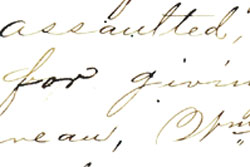 assaulted,
for givin
neau, Wm